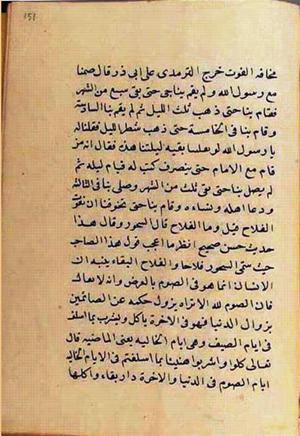 ١٥١
مخافة الفوت خرج الترمذي على ابي ذر قال صمنا
مع رسول الله ولم يقم بنا حتى بقى سبع من الشهر
فقام بنا حتى ذهب ثلث الليل ثم لم يقم بنا السادسة
وقام بنا في الخامسة حتى ذهب شطر الليل فقلنا له
يا رسول الله لو نفلتنا بقيه ليلتنا هذه فقال انه من
قام مع الامام حتى ينصرف كتب له قيام ليلة ثم
لم يصل بنا حتى بقى ثلث من الشهر وصلى بنا في الثالثة
ودعا اهله ونساءه وقام بنا حتى تخوفنا ان يفوتنا
الفلاح قيل وما الفلاح قال السحور وقال هذا
حديث حسن صحيح انظر ما اعجب قول هذا الصاحب
حيث سمى السحور فلاحا والفلاح البقاء ينبه ان
الانسان انما هو في الصوم بالعرض وانه لا
فان الصوم لله الا تراه يزول حكمه عن الصائمين
بزوال الدنيا فهو في الاخرة ياكل ويشرب بما اسلف
في ايام الصيف وهى ايام الخاليه يعنى الماضيه قال
تعالى كلوا واشربوا هنيئا بما اسلفتم في الايام الخالية
ايام الصوم في الدنيا والاخرة دار بقاء واكلها